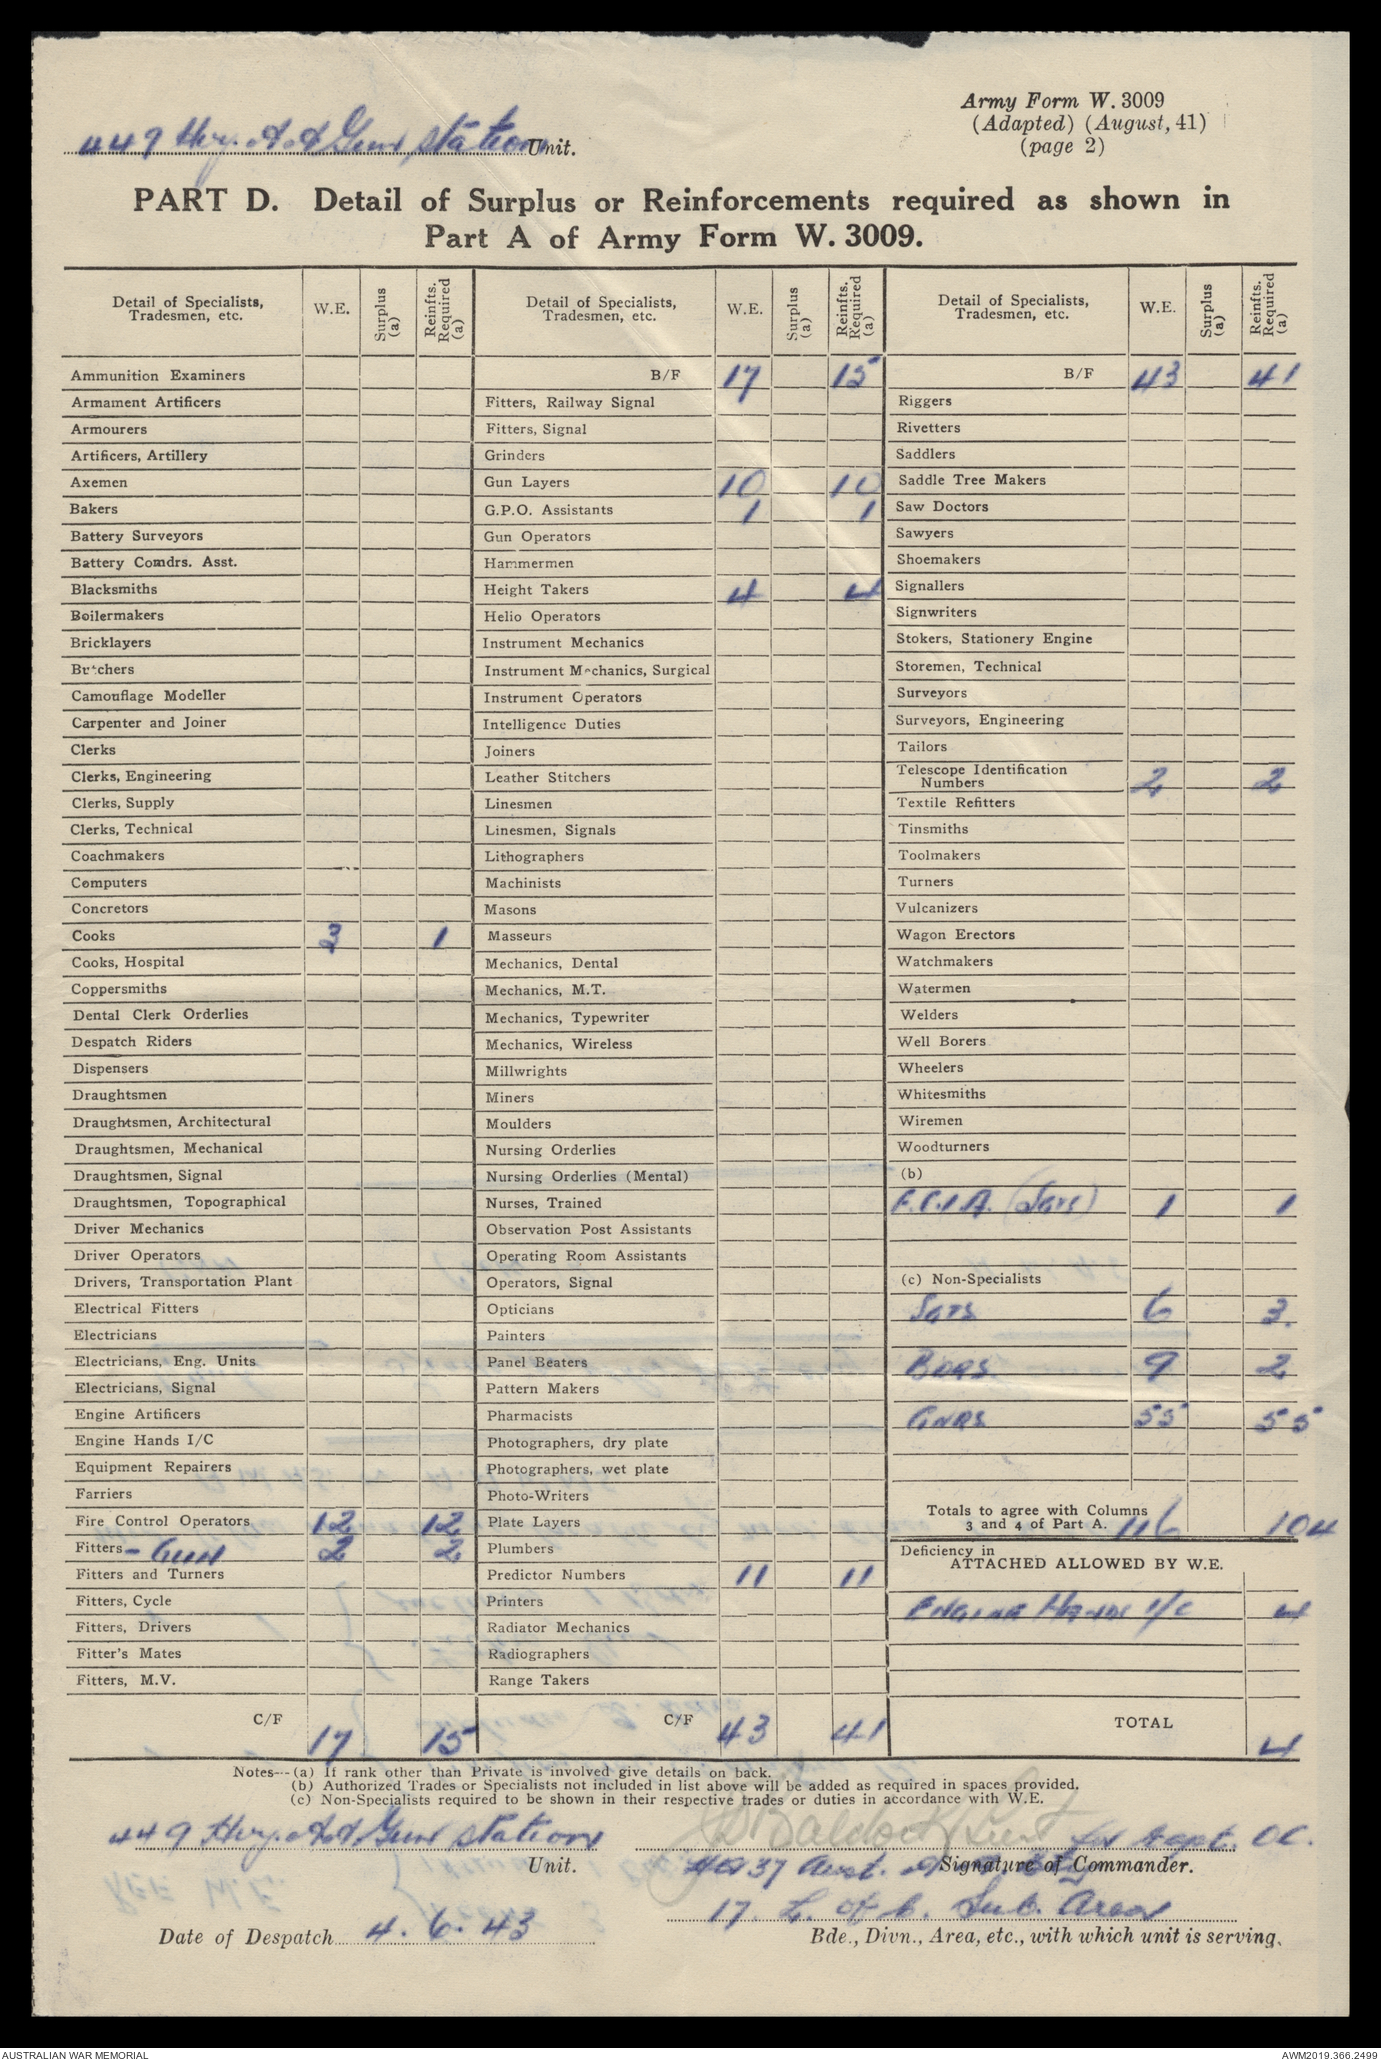 Army Form W. 3009
(Adapted) (August, 41)
(page 2)
449 Hvy. A A Gun Station Unit.
PART D. Detail of Surplus or Reinforcements required as shown in
Part A of Army Form W. 3009.
Detail of Specialists, Tradesmen, etc. W.E. Surplus (a) Reinfts. Required (a)
Ammunition Examiners
Armament Artificers
Armourers
Artificers, Artillery
Axemen
Bakers
Battery Surveyors
Battery Comdrs. Asst.
Blacksmiths
Boilermakers
Bricklayers
Butchers
Camouflage Modeller
Carpenter and Joiner
Clerks
Clerks, Engineering
Clerks, Supply
Clerks, Technical
Coachmakers
Computers
Concretors
Cooks 3 1
Cooks, Hospital
Coppersmiths
Dental Clerk Orderlies
Despatch Riders
Dispensers
Draughtsmen
Draughtsmen, Architectural
Draughtsmen, Mechanical
Draughtsmen, Signal
Draughtsmen, Topographical
Driver Mechanics
Driver Operators
Drivers, Transportation Plant
Electrical Fitters
Electricians
Electricians, Eng. Units
Electricians, Signal
Engine Artificers
Engine Hands I/C
Equipment Repairers
Farriers
Fire Control Operators 12 12
Fitters - Gun 2 2
Fitters and Turners
Fitters, Cycle
Fitters, Drivers
Fitter's Mates
Fitters, M.V.
C/F 17 15
Detail of Specialists, Tradesmen, etc. W.E. Surplus (a) Reinfts. Required (a)
B/F 17 15
Fitters, Railway Signal
Fitters, Signal
Grinders
Gun Layers 10 10
G.P.O. Assistants 1 1
Gun Operators
Hammermen
Height Takers 4 4
Helio Operators
Instrument Mechanics
Instrument Mechanics, Surgical
Instrument Operators
Intelligence Duties
Joiners
Leather Stitchers
Linesmen
Linesmen, Signals
Lithographers
Machinists
Masons
Masseurs
Mechanics, Dental
Mechanics, M.T.
Mechanics, Typewriter
Mechanics, Wireless
Millwrights
Miners
Moulders
Nursing Orderlies
Nursing Orderlies (Mental)
Nurses, Trained
Observation Post Assistants
Operating Room Assistants
Operators, Signal
Opticians
Painters
Panel Beaters
Pattern Makers
Pharmacists
Photographers, dry plate
Photographers, wet plate
Photo-Writers
Plate Layers
Plumbers
Predictor Numbers 11 11
Printers
Radiator Mechanics
Radiographers
Range Takers
C/F 43 41
Detail of Specialists, Tradesmen, etc. W.E. Surplus (a) Reinfts. Required (a)
B/F 43 41
Riggers
Rivetters
Saddlers
Saddle Tree Makers
Saw Doctors
Sawyers
Shoemakers
Signallers
Signwriters
Stokers, Stationery Engine
Storemen, Technical
Surveyors
Surveyors, Engineering
Tailors
Telescope Identification
Numbers 2 2
Textile Refitters
Tinsmiths
Toolmakers
Turners
Vulcanizers
Wagon Erectors
Watchmakers
Watermen
Welders
Well Borers
Wheelers
Whitesmiths
Wiremen
Woodturners
(b)
F.C.I.A. (Sgts) 1 1
(c) Non-Specialists
SGTS 6 3.
BDRS. 9 2
GNRS 55 55
Totals to agree with Columns
3 and 4 of Part A. 116 104
Deficiency in
ATTACHED ALLOWED BY W.E.
ENGINE HANDS I/C 4
TOTAL 4
Notes--(a) If rank other than Private is involved give details on back.
(b) Authorized Trades or Specialists not included in list above will be added as required in spaces provided.
(c) Non-Specialists required to be shown in their respective trades or duties in accordance with W.E.
449 Hvy. A A Gun Station Baldock Lieut for Capt. OC.
Unit. 37 Aust. Signature of Commander.
17. L. of C. Sub. Area
Date of Despatch 4. 6. 43 Bde., Divn., Area, etc., with which unit is serving.
AUSTRALIAN WAR MEMORIAL AWM2019.366.2499